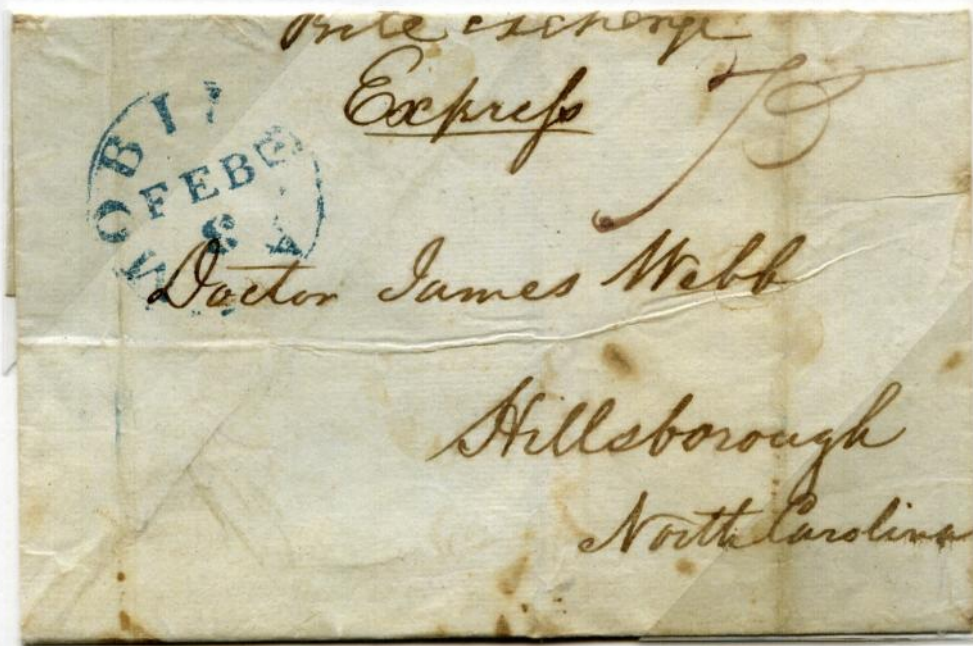 exchange
Express
75
MOBIL
FEB
8
A
Doctor James Webb
Hillsborough
North Carolina